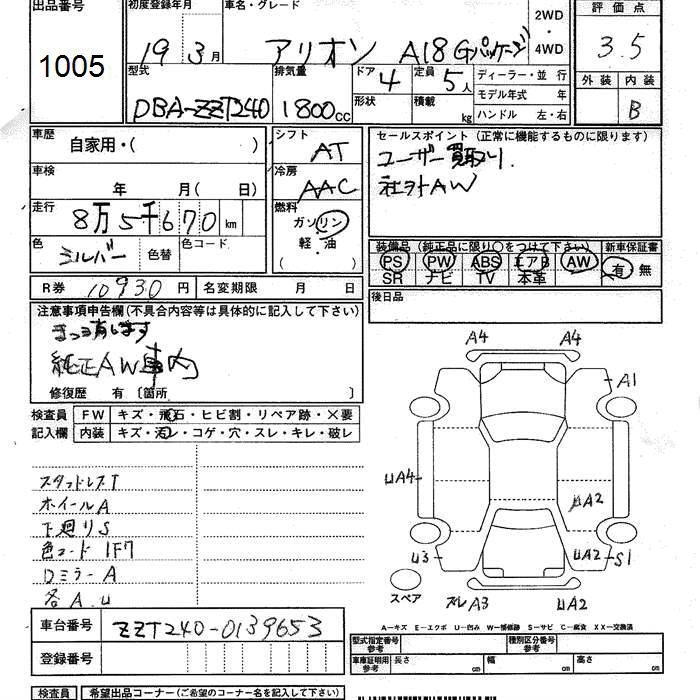 出品番号 初度登録年月 車名・グレード 2WD 評価点
1005 19年3月 アリオン A18 Gパッケージ ・ 4WD 3.5
型式 排気量 ドア 4 定員 5人 ディーラー・並行 外装 内装
DBA-ZZT240 1800cc 形状 積載 kg モデル年式 年 B
ハンドル 左・右
車歴 自家用・( ) シフト AT セールスポイント (正常に機能するものに限ります)
車検 年 月( 日) 冷房 AAC ユーザー買取り.
社外AW
走行 8万5千670km 燃料 ガソリン
色 シルバー 色替 色コード 軽・油 ( ) 装備品 (純正品に限り○をつけて下さい) 新車保証書
PS PW ABS エアB AW 有 無
SR ナビ TV 本革
R券 10930円 名変期限 月 日 後日品
注意事項申告欄(不具合内容等は具体的に記入して下さい)
純正AW車内
修復歴 有 〔箇所 〕
検査員 FW キズ・飛石・ヒビ割・リペア跡・×要
記入欄 内装 キズ・汚レ・コゲ・穴・スレ・キレ・破レ
A4 A4
A1
UA4
UA2
U3 UA2 S1
スペア スレ A3 UA2
スタッドレスT
ホイールA
下廻りS
色コード 1F7
Dミラー A
各A.U
A－キズ E－エクボ U－凹み W－補修跡 S－サビ C－腐食 XX－交換済
車台番号 ZZT240-0139653
登録番号
型式指定番号 参考 種別区分番号 参考
車庫証明用 参考 長さ cm 幅 cm 高さ cm
検査員 希望出品コーナー(ご希望のコーナー名を記入下さい)